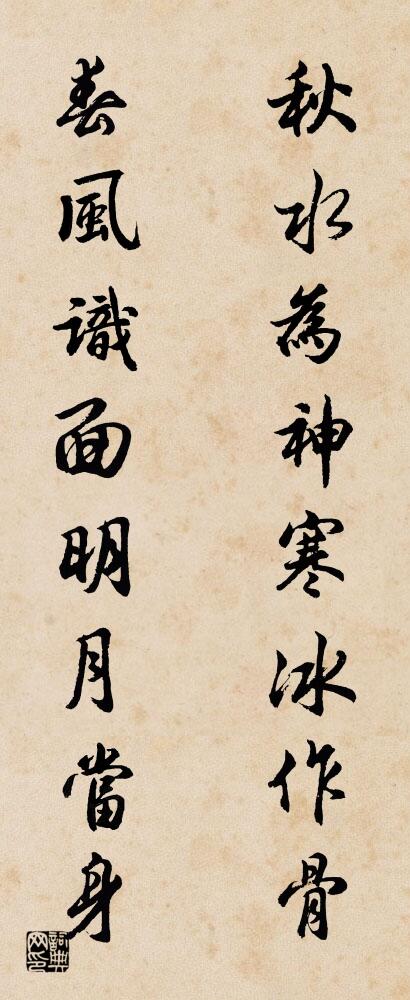 秋水為神寒冰作骨
春風識面明月當身
詞典网印